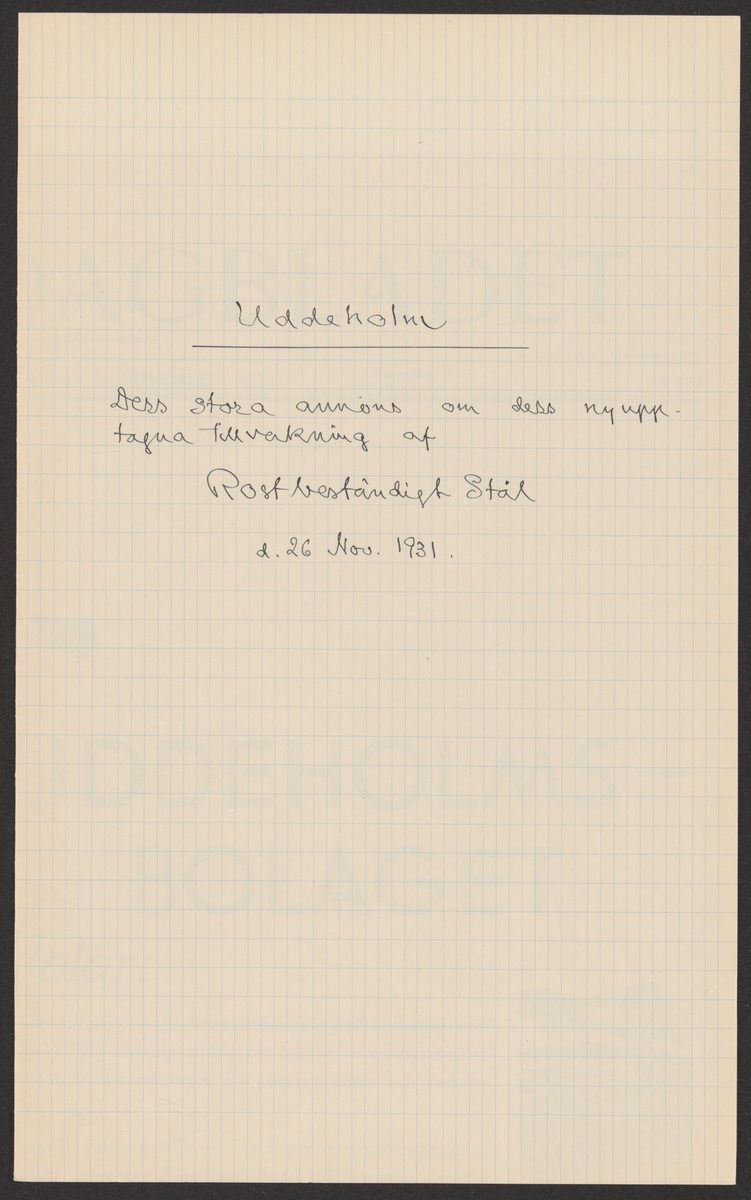 Uddeholm
Dess stora annons om dess nyupp-
tagna Tillverkning af
Rostbeständigt Stål
d. 26 Nov. 1931.
UDDEHOLMS-
BOLAGET